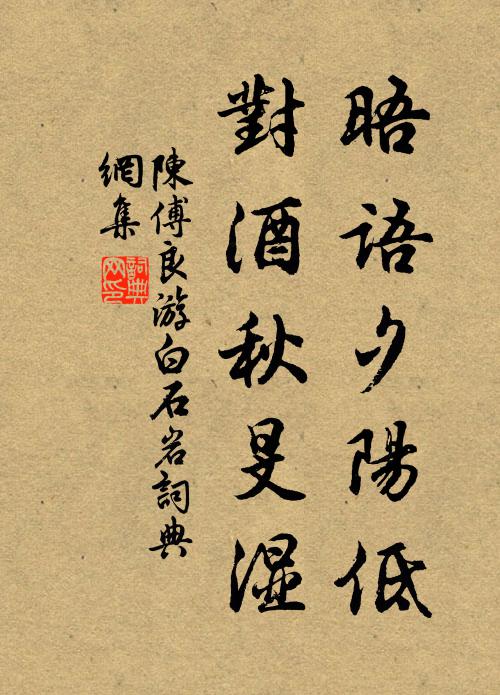 晤語夕陽低
對酒秋旻湿
陳傅良游白石岩詞典
網集
詞典
网印